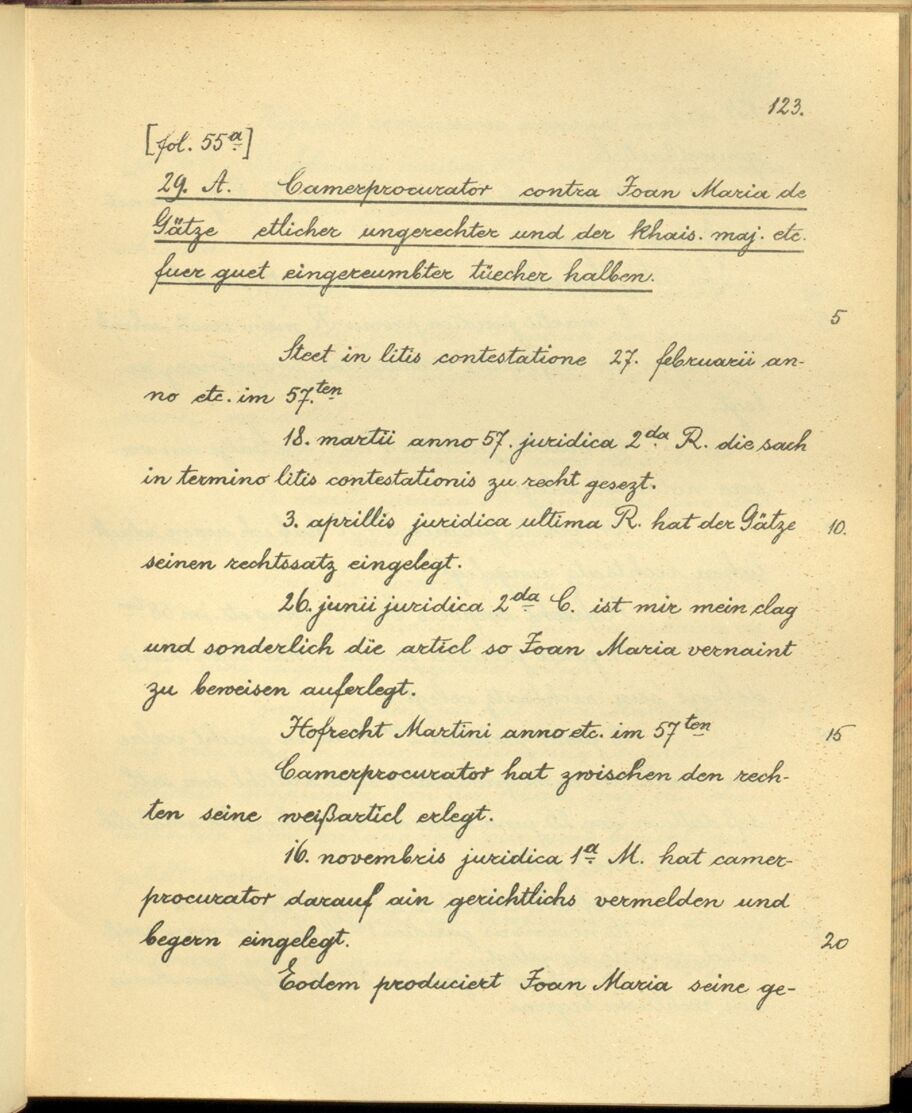 123.
[fol. 55a]
29. A. Camerprocurator contra Joan Maria de
Gätze etlicher ungerechter und der khais. maj. etc.
fuer guet eingereumbter tüecher halben.
5
Steet in litis contestatione 27. februarii an-
no etc. im 57.ten
18. martii anno 57. juridica 2da R. die sach
in termino litis contestationis zu recht gesezt.
3. aprillis juridica ultima R. hat der Gätze 10.
seinen rechtssatz eingelegt.
26. junii juridica 2da C. ist mir mein clag
und sonderlich die articl so Joan Maria vernaint
zu beweisen auferlegt.
Hofrecht Martini anno etc. im 57ten 15
Camerprocurator hat zwischen den rech-
ten seine weißarticl erlegt.
16. novembris juridica 1a M. hat camer-
procurator darauf ain gerichtlichs vermelden und
begern eingelegt. 20
Eodem produciert Joan Maria seine ge-